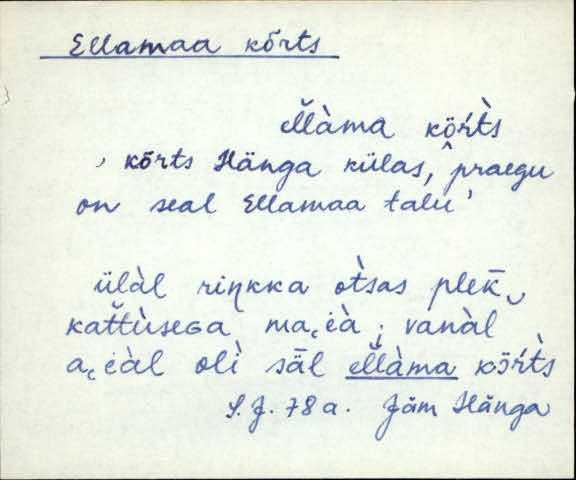 Ellamaa kõrts
el̆l̆àma kö̭ŕt̀s
, kõrts Hänga külas, praegu
on seal Ellamaa talu'
ülàl riŋkka ot̀sas plek̄
kat̆t̆ùseɢa ma̬i̯à ; vanàl
a̬i̯àl olì sāl el̆l̆àma kö̭ŕt̀s
S.J. 78 a. Jäm Hänga